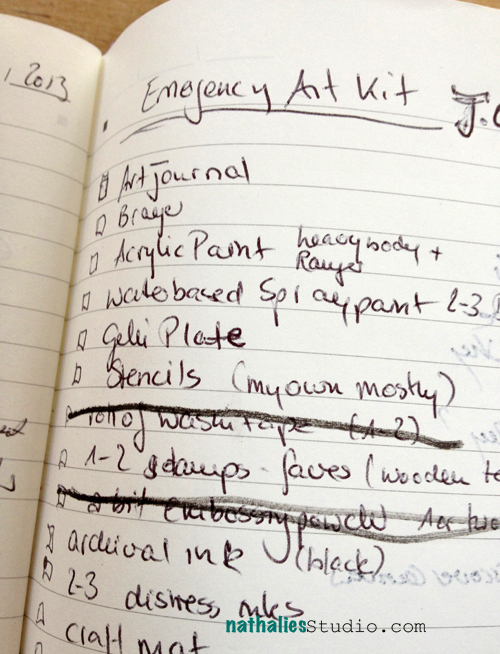 2013
Emergency Art Kit J.
Art Journal
Brayer
Acrylic Paint heavy body +
Ranger
waterbased Spraypaint 2-3
Gelli Plate
Stencils (my own mostly)
roll of washi tape (1-2)
1-2 stamps - faves (wooden
a bit Embossingpowder
archival ink (black)
2-3 distress inks
craft mat
nathaliesStudio.com